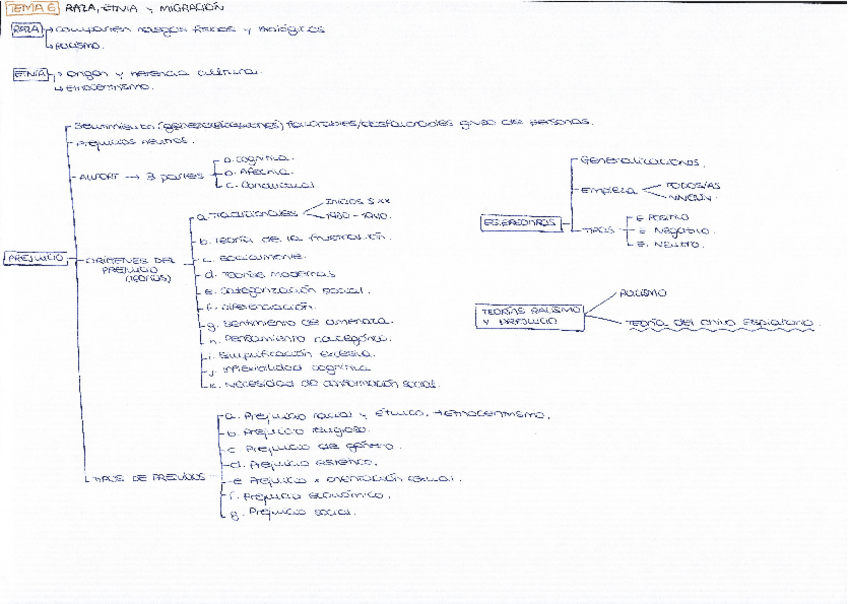 TEMA 6 RAZA, ETNIA Y MIGRACIÓN
RAZA → comparten rasgos físicos y biológicos
↳ RACISMO.
ETNIA → origen y herencia cultural.
↳ etnocentrismo.
PREJUICIO
Sentimiento (generalizaciones) favorables/desfavorables grupo de personas.
Prejuicios neutros.
ALLPORT → 3 partes
a. Cognitiva.
b. Afectiva.
c. Conductual
ORÍGENES DEL PREJUICIO
(TEORÍAS)
a. Tradicionales
INICIOS S.XX
1930 - 1940.
b. Teoría de la frustración.
c.
d. Teorías modernas
e. Categorización social.
f. Diferenciación.
g. Sentimiento de amenaza.
h. Pensamiento categórico.
i. Simplificación excesiva.
j. Inflexibilidad cognitiva
k. Necesidad de conformación social.
TIPOS DE PREJUICIOS
a. Prejuicio racial y étnico. → etnocentrismo.
b. Prejuicio religioso.
c. Prejuicio de género.
d. Prejuicio estético.
e Prejuicio x orientación sexual.
f. Prejuicio económico.
g. Prejuicio social.
ESTEREOTIPOS
Generalizaciones.
EMPIEZA
TODOS/AS
NINGÚN.
TIPOS
E. POSITIVO
E. NEGATIVO
E. NEUTRO.
TEORÍAS RACISMO
Y PREJUICIO
RACISMO
TEORÍA DEL CHIVO EXPIATORIO.